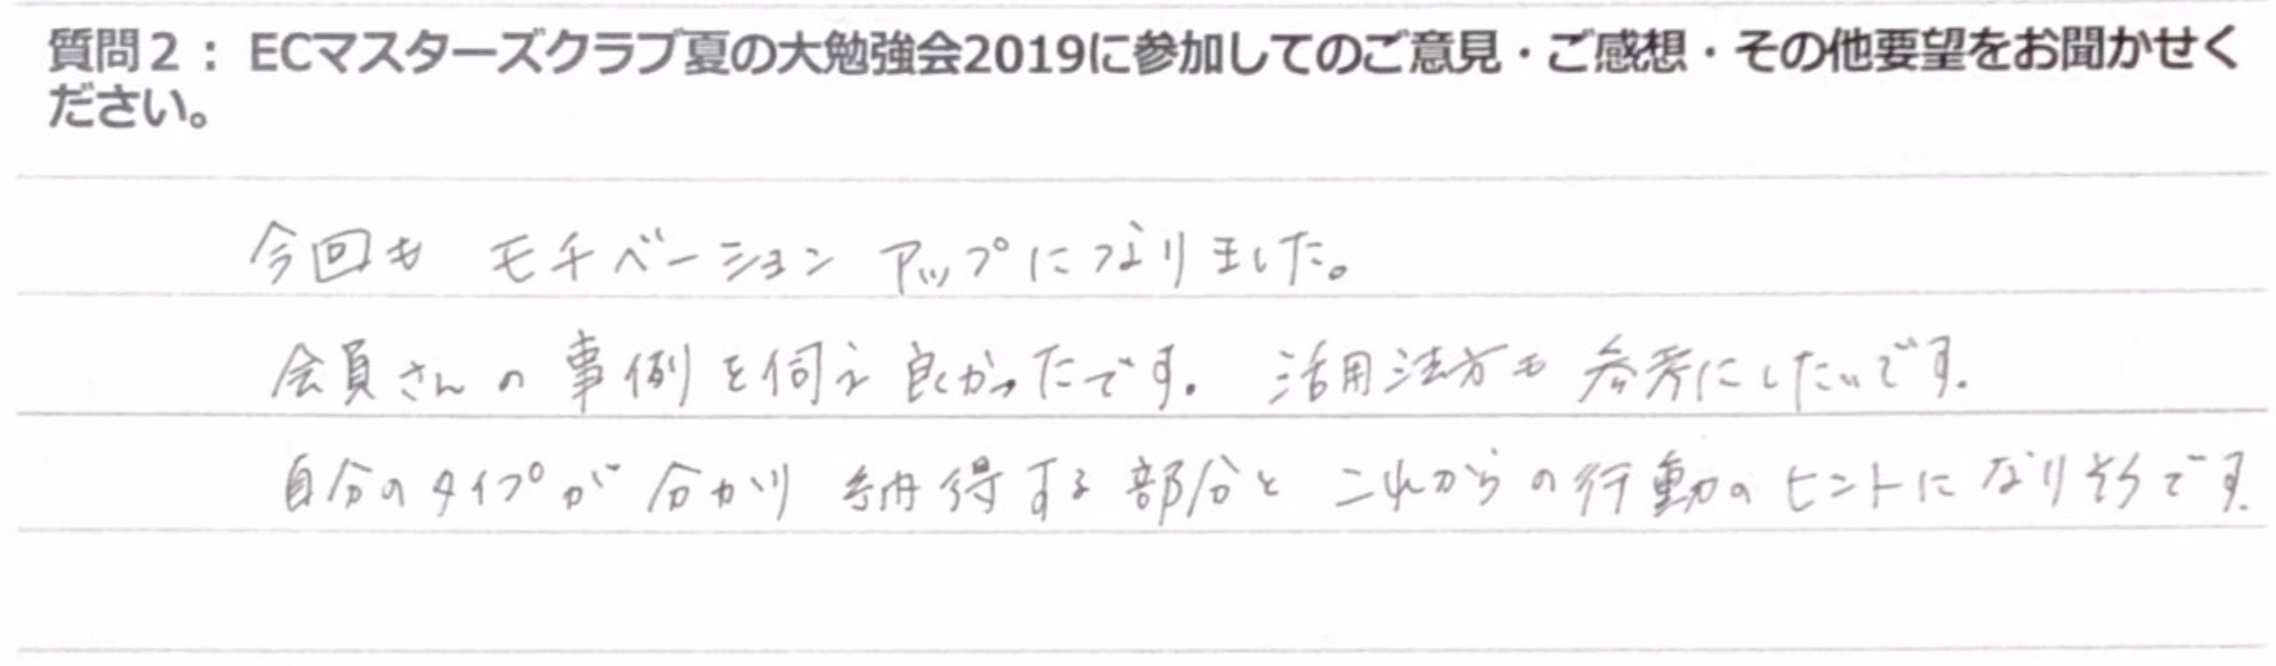 質問２：ECマスターズクラブ夏の大勉強会2019に参加してのご意見・ご感想・その他要望をお聞かせく
ださい。
今回も モチベーション アップになりました。
会員さんの事例を伺え良かったです。 活用法方も 参考にしたいです。
自分のタイプが分かり 納得する部分と これからの行動のヒントになりそうです。